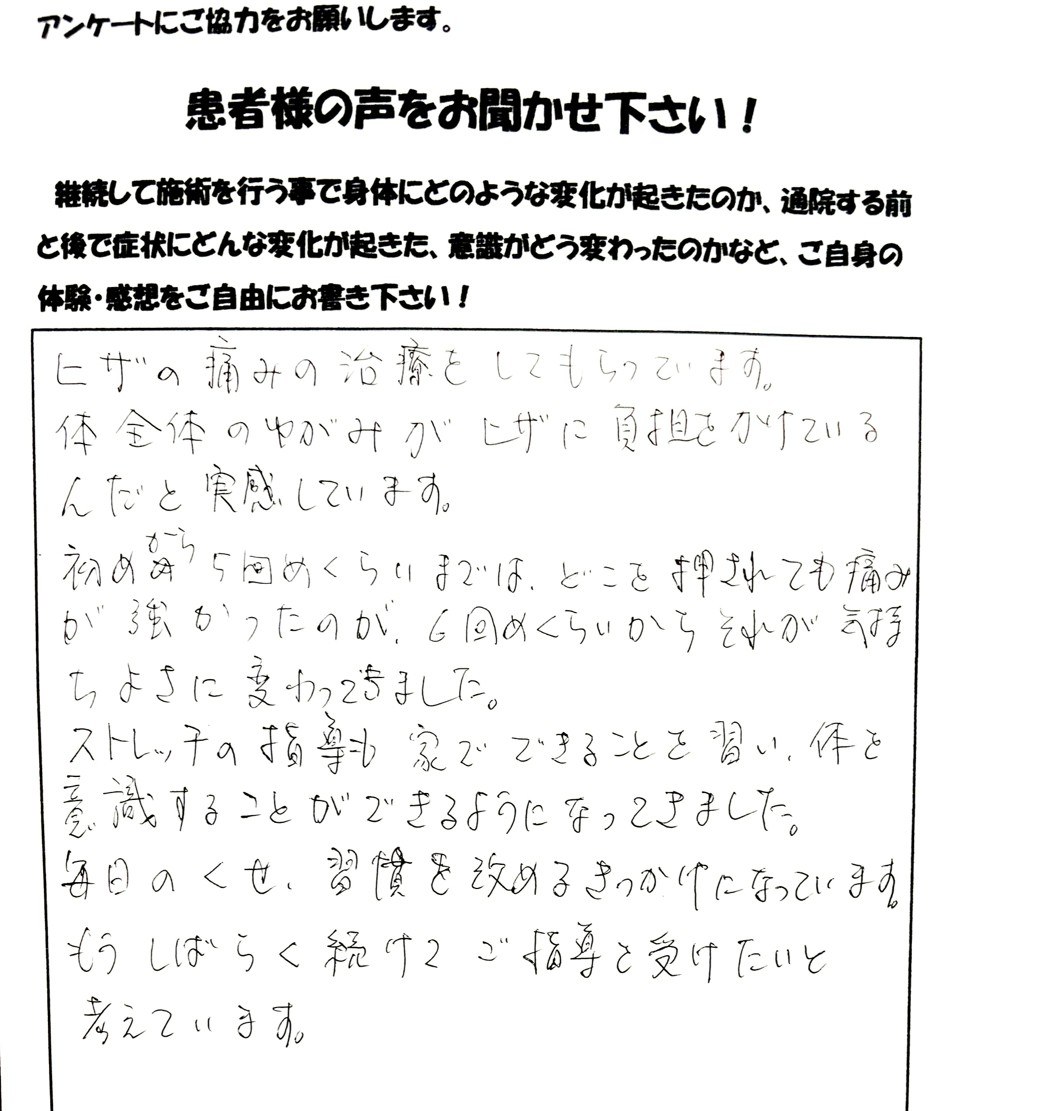 アンケートにご協力をお願いします。
患者様の声をお聞かせ下さい！
継続して施術を行う事で身体にどのような変化が起きたのか、通院する前
と後で症状にどんな変化が起きた、意識がどう変わったのかなど、ご自身の
体験・感想をご自由にお書き下さい！
ヒザの痛みの治療をしてもらっています。
体全体のゆがみがヒザに負担をかけている
んだと実感しています。
初めから5回めくらいまでは、どこを押されても痛み
が強かったのが、6回めくらいからそれが気持
ちよさに変わってきました。
ストレッチの指導も家でできることを習い、体を
意識することができるようになってきました。
毎日のくせ、習慣を改めるきっかけになっています。
もうしばらく続けてご指導を受けたいと
考えています。